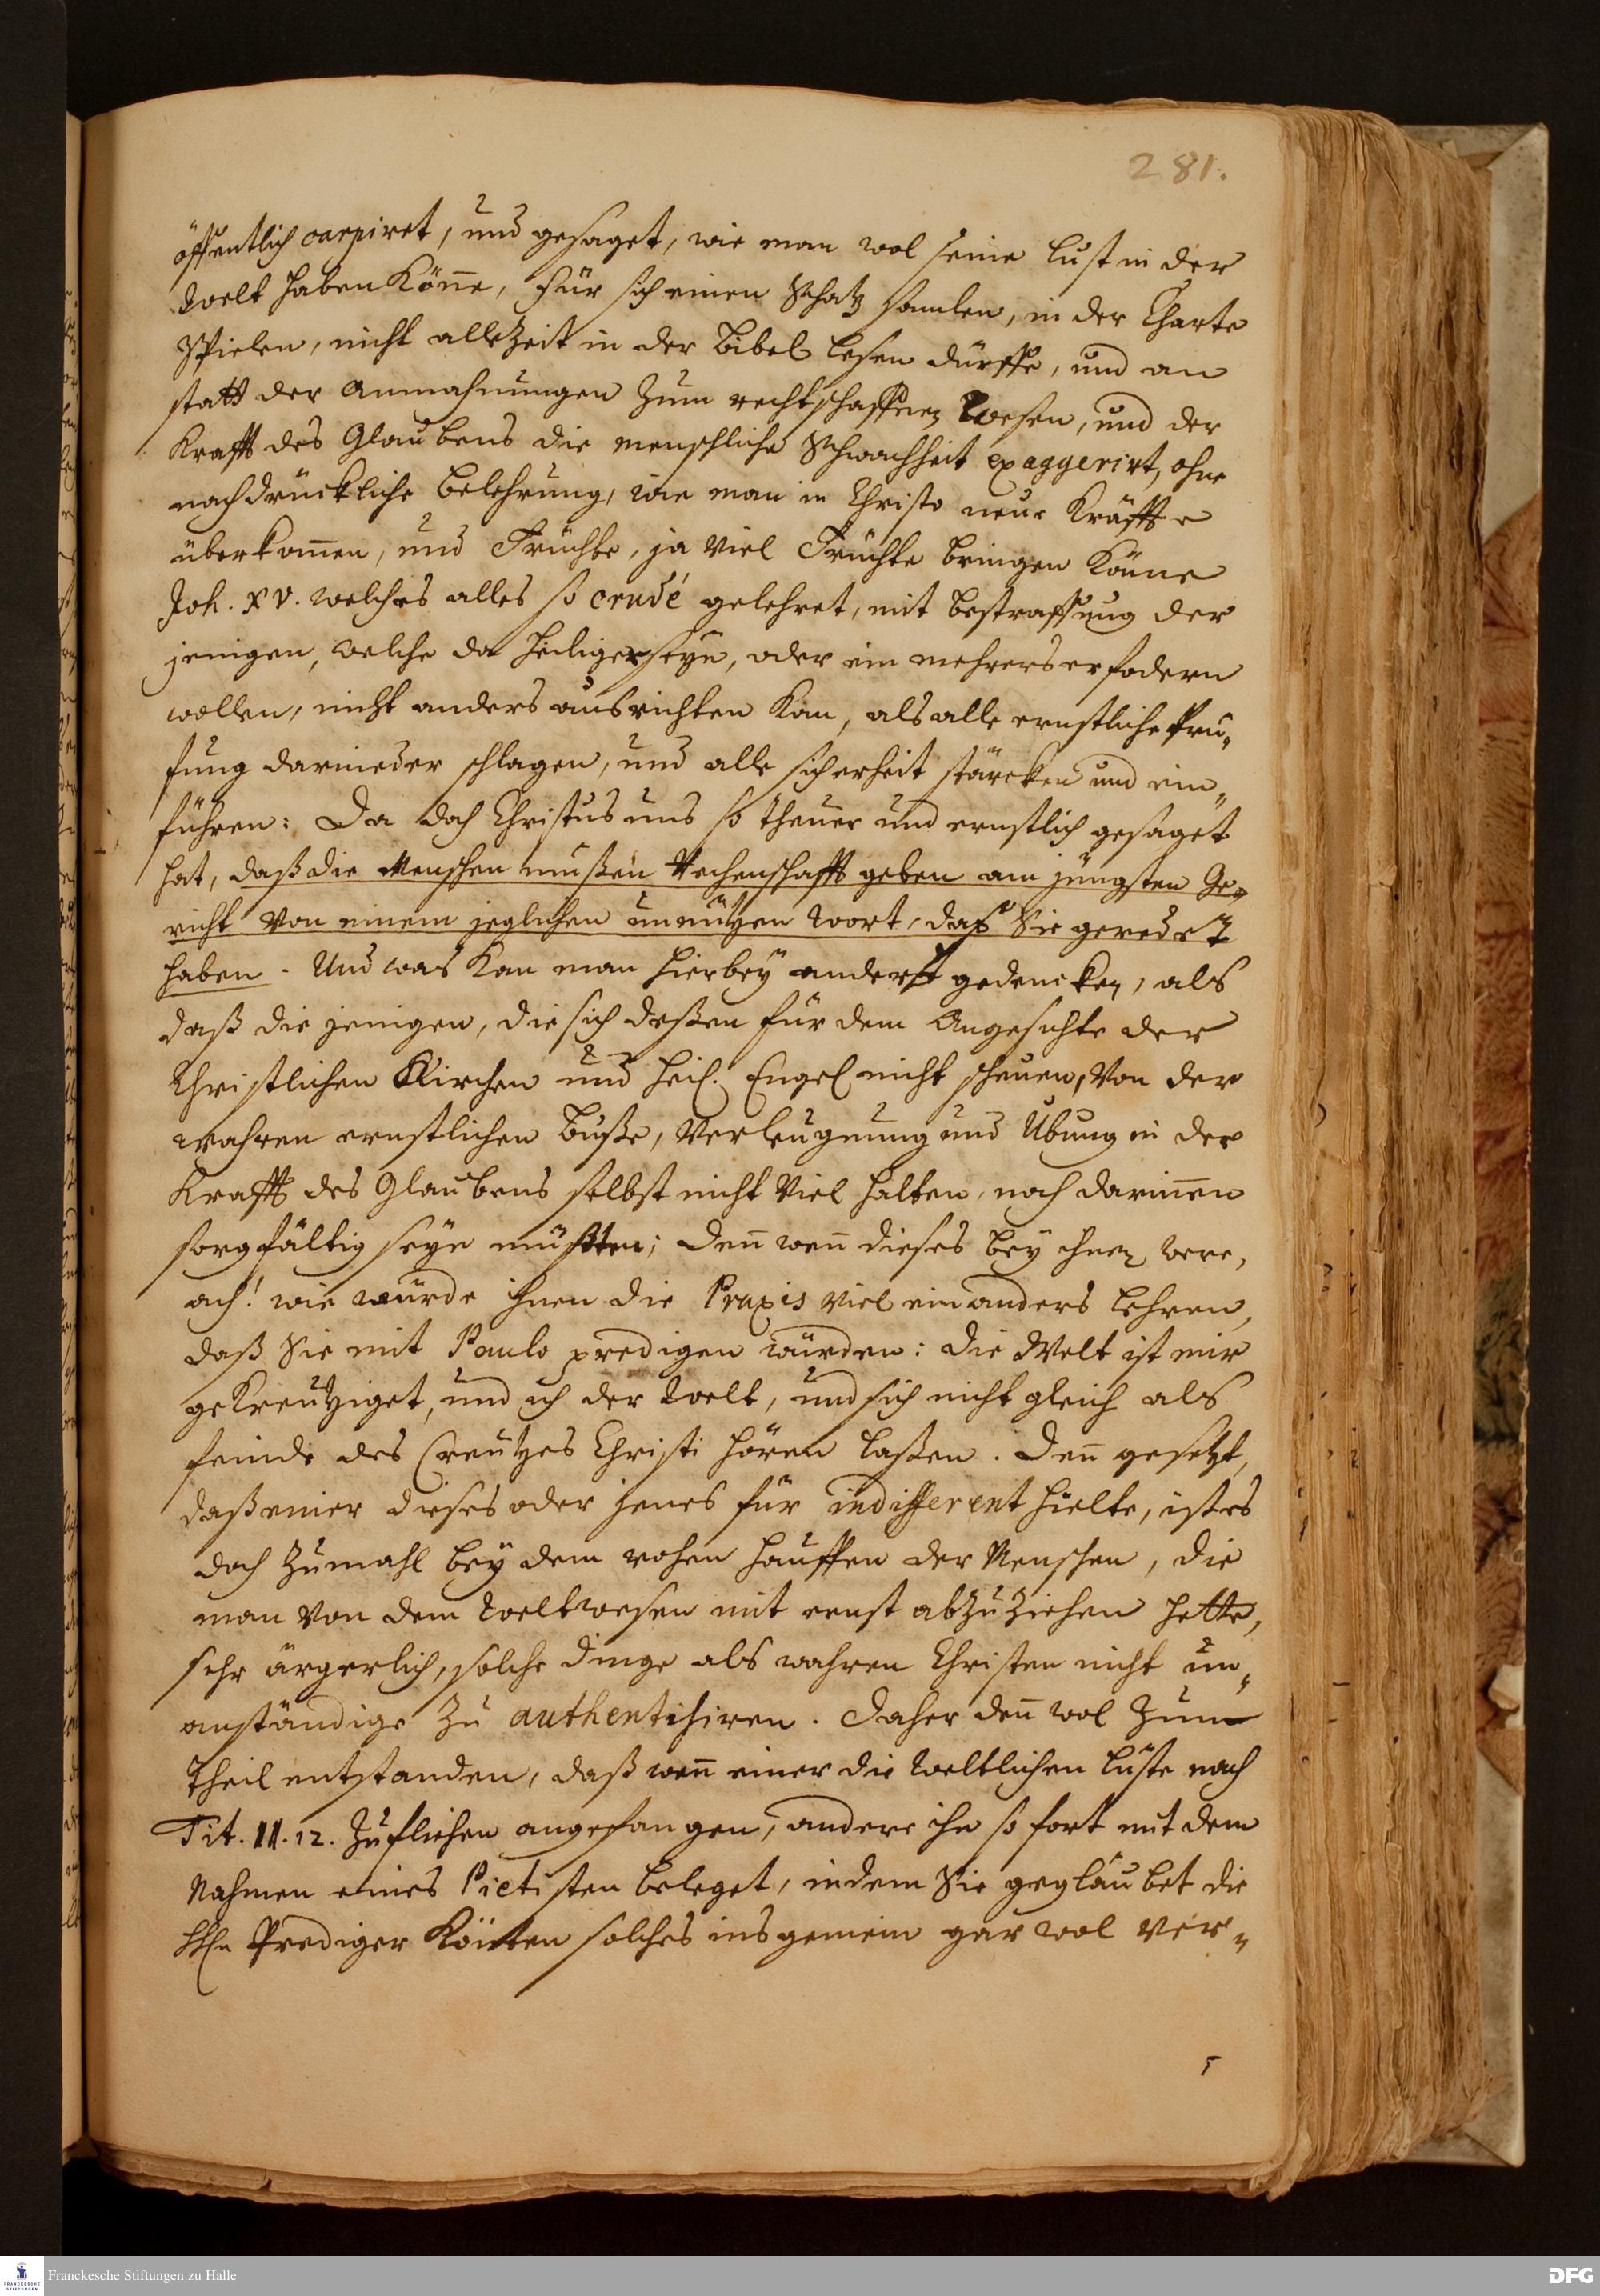 281.
öffentlich carpiret, und gesaget, wie man wol seine Lust in der
Welt haben köñe, für sich einen Schatz samlen, in der Charte
Spielen, nicht allezeit in der Bibel lesen dürffe, und an
statt der Anmahnungen zum rechtschaffnen Wesen, und der
Krafft des Glaubens die menschliche Schwachheit exaggerirt, ohne
nachdrückliche Belehrung, wie man in Christo neue Kräffte
überkom̃en, und Früchte, ja viel Früchte bringen könne
Joh. XV. welches alles so crudé gelehret, mit Bestraffung der
jenigen, welche da heiliger seyn, oder ein mehrers erfodern
wollen, nicht anders ausrichten kan, als alle ernstliche Prü„
fung darnieder schlagen, und alle sicherheit stärcken und ein„
führen: Da doch Christus uns so theuer und ernstlich gesaget
hat, daß die Menschen mußen Rechenschafft geben am jüngsten Ge„
richt von einem jeglichen unnützen Wort, daß Sie geredet
haben. Und was kan man hierbey anderst gedencken, als
daß die jenigen, die sich deßen für dem Angesichte der
Christlichen Kirchen und heil. Engel nicht scheuen, von der
wahren ernstlichen Buße, Verleugnung und Übung in der
Krafft des Glaubens selbst nicht viel halten, noch dariñen
sorgfältig seyn müßten; Deñ weñ dieses bey ihnen were,
ach! wie würde ihnen die Praxis viel ein anders lehren,
daß Sie mit Paulo predigen würden: die Welt ist mir
gekreutziget, und ich der Welt, und sich nicht gleich als
feinde des Creutzes Christi hören laßen. Deñ gesetzt,
daß einer dieses oder jenes für indifferent hielte, ist es
doch zumahl bey dem rohen hauffen der Menschen, die
man von dem Weltwesen mit ernst abzuziehen hette,
sehr ärgerlich, solche dinge als wahren Christen nicht un„
anständige zu authentisiren. Daher deñ wol zum
Theil entstanden, daß weñ einer die Weltlichen Lüste nach
Tit. II. 12. zufliehen angefangen, andere ihn so fort mit dem
Nahmen eines Pietisten beleget, indem Sie gegläubet die
Prediger könten solches ins gemein gar wol ver„
Franckesche Stiftungen zu Halle
FRANCKESCHE STIFTUNGEN
DFG